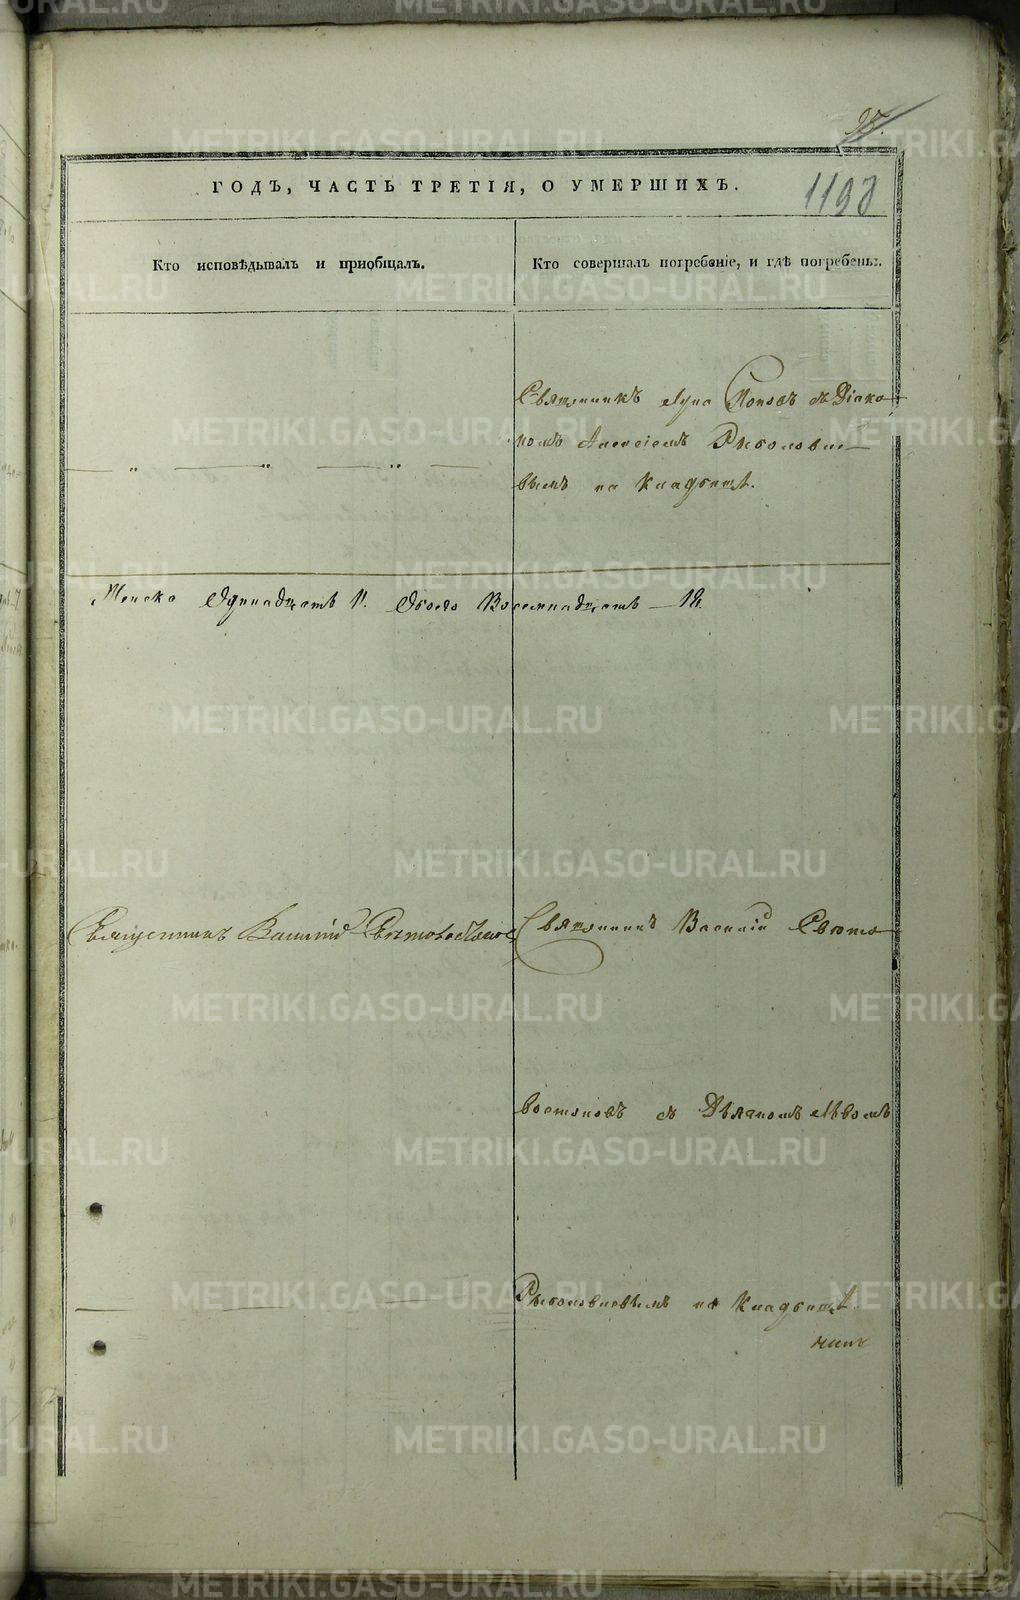 97.
ГОДЪ, ЧАСТЬ ТРЕТІЯ, О УМЕРШИХЪ.
1198
Кто исповѣдывалъ и пріобщалъ.
Кто совершалъ погребеніе, и гдѣ погребены.
Священникъ Лука Поповъ съ Діако
номъ Алексіемъ Рыболовле
вымъ на кладбищѣ.
— „ — „ — „ —
Женска Одинадцать 11. Обоего Восемнадцать — 18.
Священникъ Василій
Священникъ Василій Свято
востоковъ съ Дьячкомъ Львомъ
Рыболовлевымъ на кладбищѣ.
METRIKI.GASO-URAL.RU